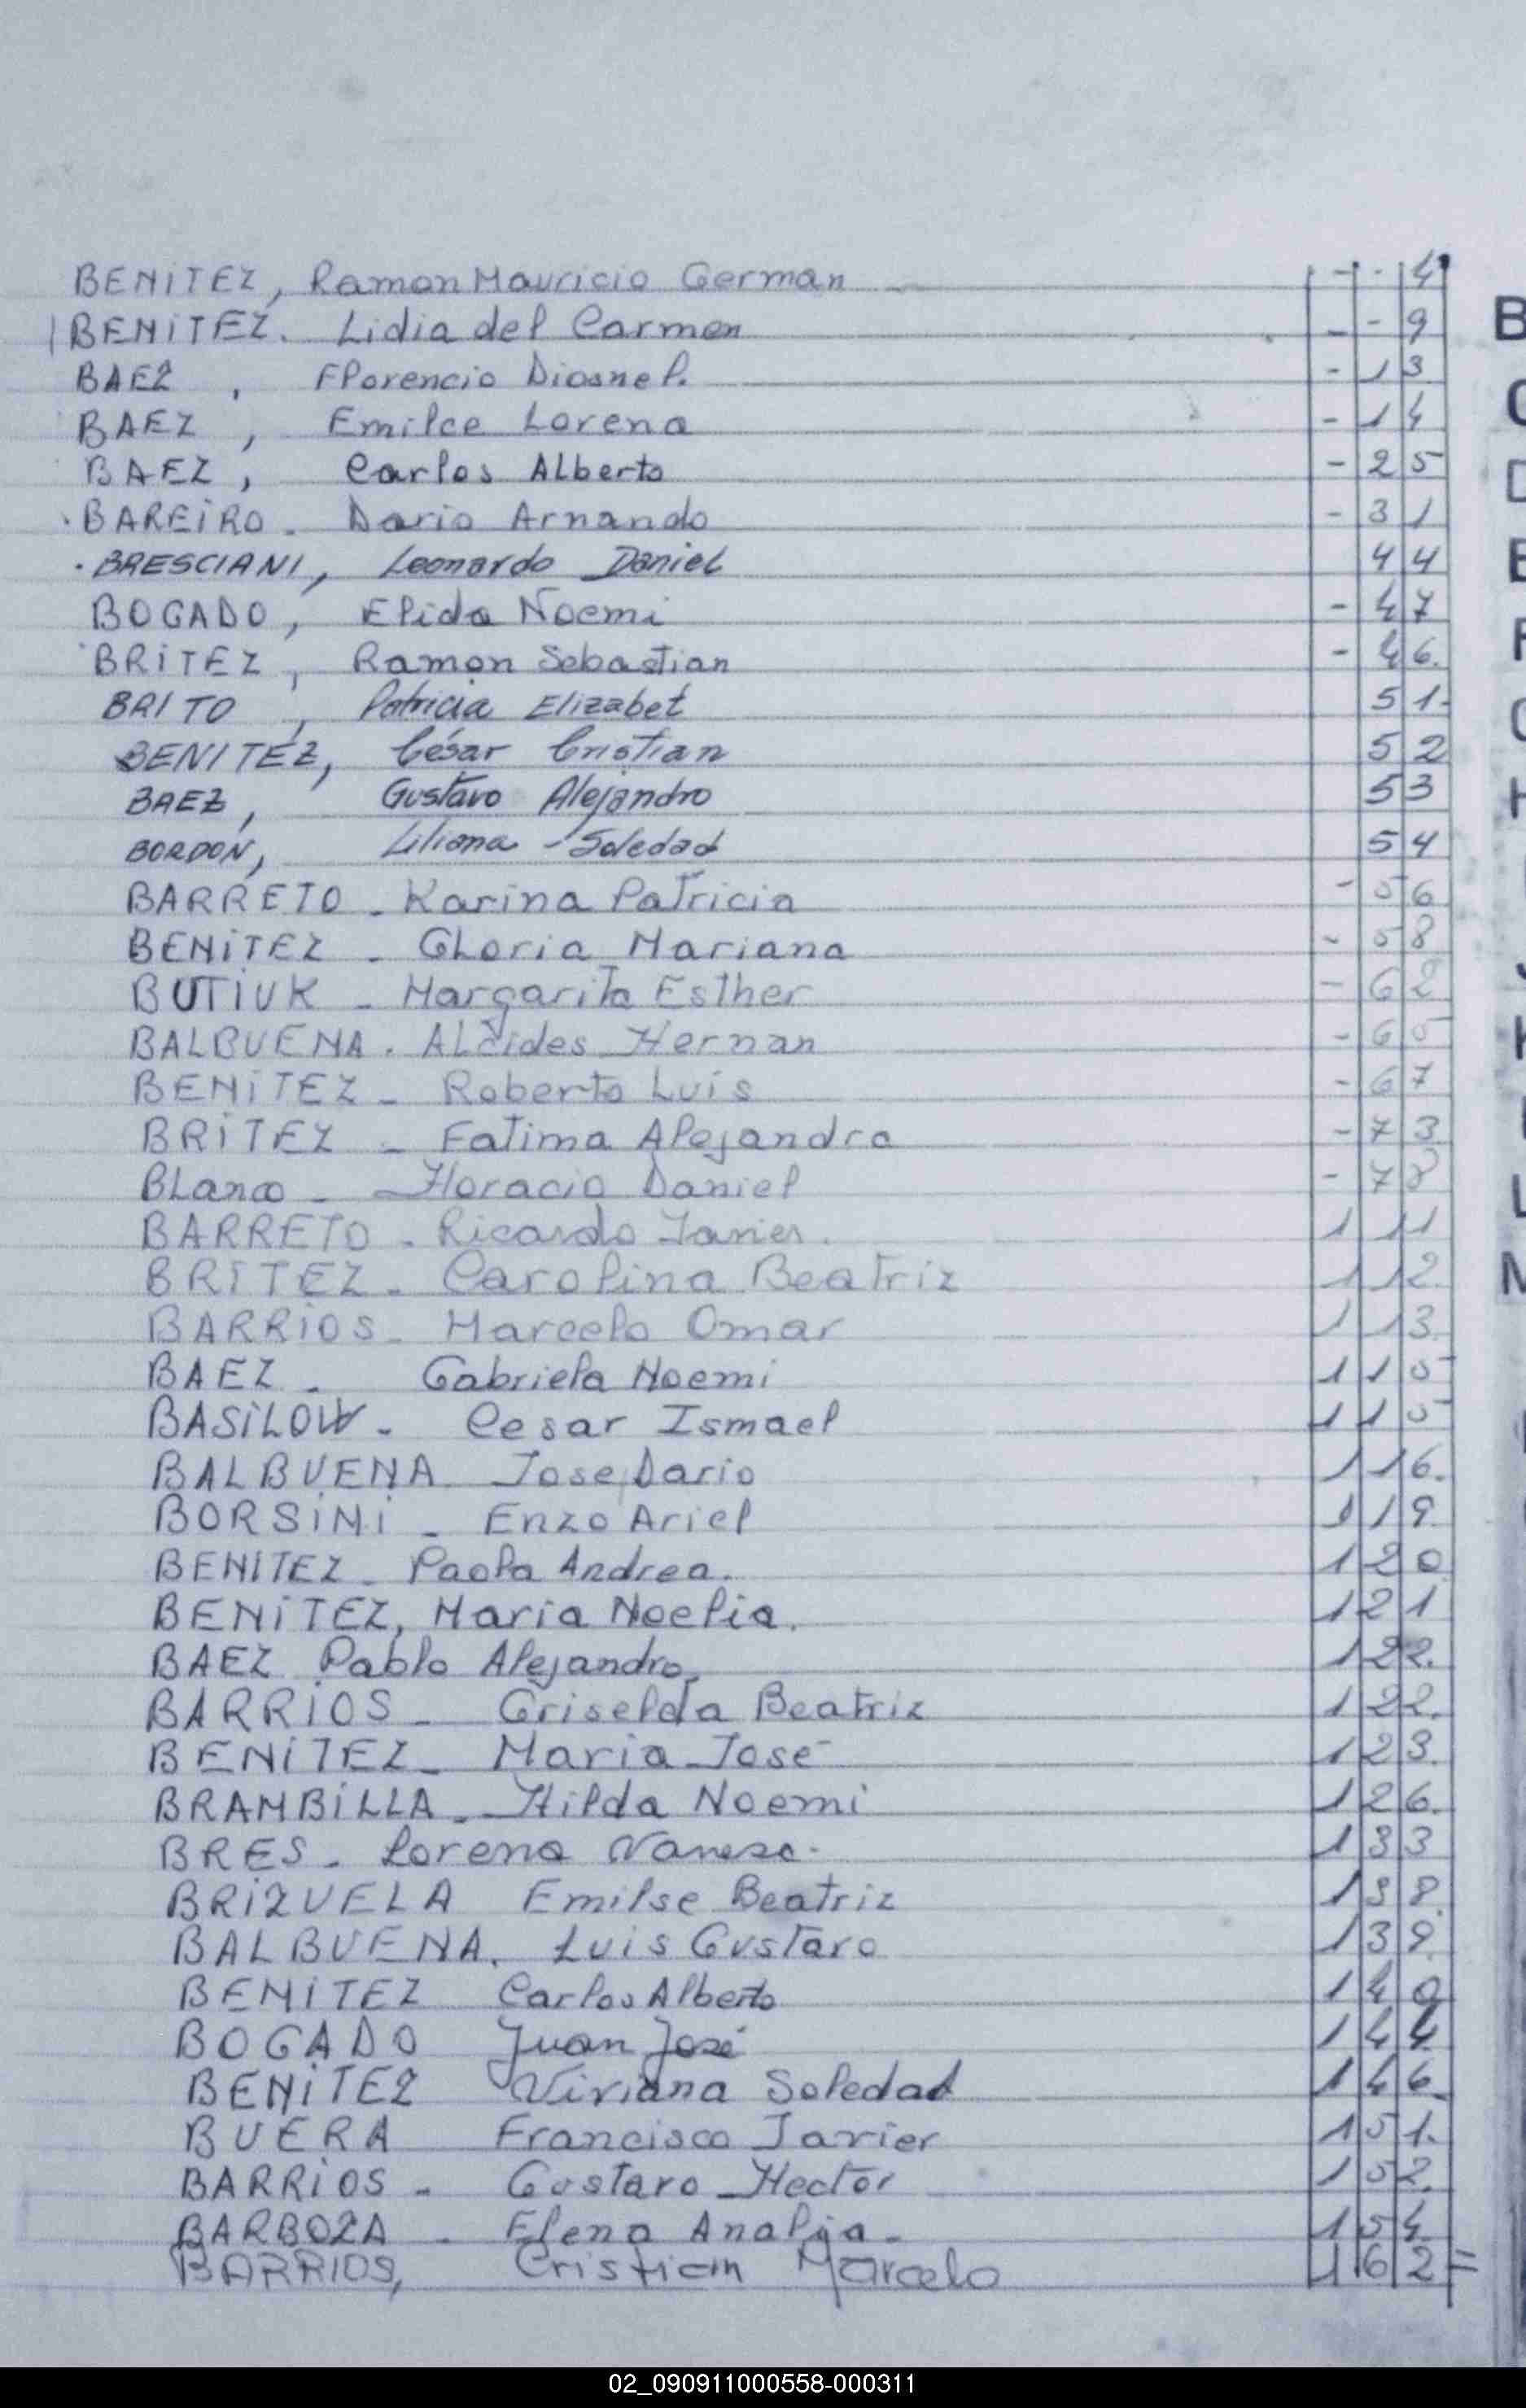 BENITEZ, Ramon Mauricio German - - 4
BENITEZ. Lidia del Carmen - - 9
BAEZ, Florencio Diosnel. - 13
BAEZ, Emilce Lorena - 14
BAEZ, Carlos Alberto - 25
BAREIRO - Dario Arnando - 31
BRESCIANI, Leonardo Daniel 44
BOGADO, Elida Noemi - 47
BRITEZ, Ramon Sebastian - 46.
BRITO, Patricia Elizabet 51.
BENITEZ, César Cristian 52
BAEZ, Gustavo Alejandro 53
BORDON, Liliana Soledad 54
BARRETO - Karina Patricia - 56
BENITEZ - Gloria Mariana - 58
BUTIUK - Margarita Esther - 62
BALBUENA. Alcides Hernan - 65
BENITEZ - Roberto Luis - 67
BRITEZ - Fatima Alejandra - 73
Blanco - Horacio Daniel - 78
BARRETO - Ricardo Javier. 111
BRITEZ - Carolina Beatriz 112.
BARRIOS - Marcelo Omar 113.
BAEZ - Gabriela Noemi 115
BASILOW - Cesar Ismael 115
BALBUENA Jose Dario 116.
BORSINI - Enzo Ariel 119
BENITEZ - Paola Andrea. 120
BENITEZ, Maria Noelia. 121
BAEZ Pablo Alejandro. 122.
BARRIOS - Griselda Beatriz 122.
BENITEZ - Maria José 123.
BRAMBILLA - Hilda Noemi 126.
BRES - Lorena Vanesa. 133
BRIZUELA Emilse Beatriz 138.
BALBUENA. Luis Gustavo 139.
BENITEZ Carlos Alberto 140
BOGADO Juan José 144
BENITEZ Viviana Soledad 146.
BUERA Francisco Javier 151.
BARRIOS - Gustavo Hector 152.
BARBOZA - Elena Analia - 154
BARRIOS, Cristian Marcelo 162=
B
C
D
E
F
G
H
J
K
L
M
02_090911000558-000311